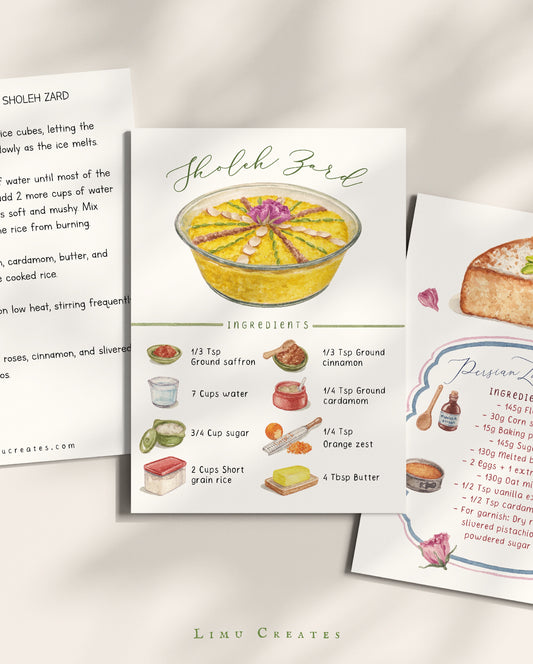 SHOLEH ZARD
ice cubes, letting the
lowly as the ice melts.
f water until most of the
add 2 more cups of water
s soft and mushy. Mix
he rice from burning.
cardamom, butter, and
e cooked rice.
on low heat, stirring frequently
roses, cinnamon, and slivered
os.
ucreates.com
Sholeh Zard
INGREDIENTS
1/3 Tsp
Ground saffron
1/3 Tsp Ground
cinnamon
7 Cups water
1/4 Tsp Ground
cardamom
3/4 Cup sugar
1/4 Tsp
Orange zest
2 Cups Short
grain rice
4 Tbsp Butter
Persian
INGREDIE
- 145g Fl
- 30g Corn s
- 15g Baking p
- 145g Suga
- 130g Melted b
- 2 Eggs + 1 extr
- 130g Oat mi
- 1/2 Tsp vanilla ex
- 1/2 Tsp cardam
- For garnish: Dry r
slivered pistachio
powdered sugar
LIMU CREATES